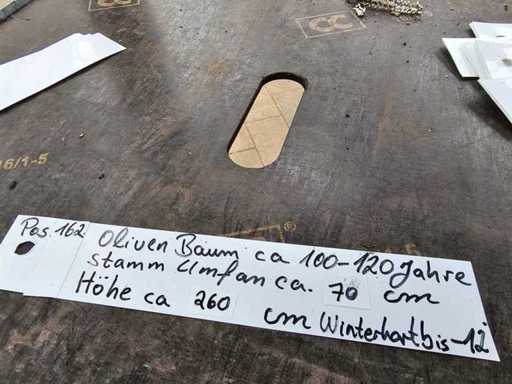 CC
16/1-5
Pos. 162
Oliven Baum ca 100-120 Jahre
Stamm Umfan ca. 70 cm
Höhe ca 260 cm Winterhart bis -12